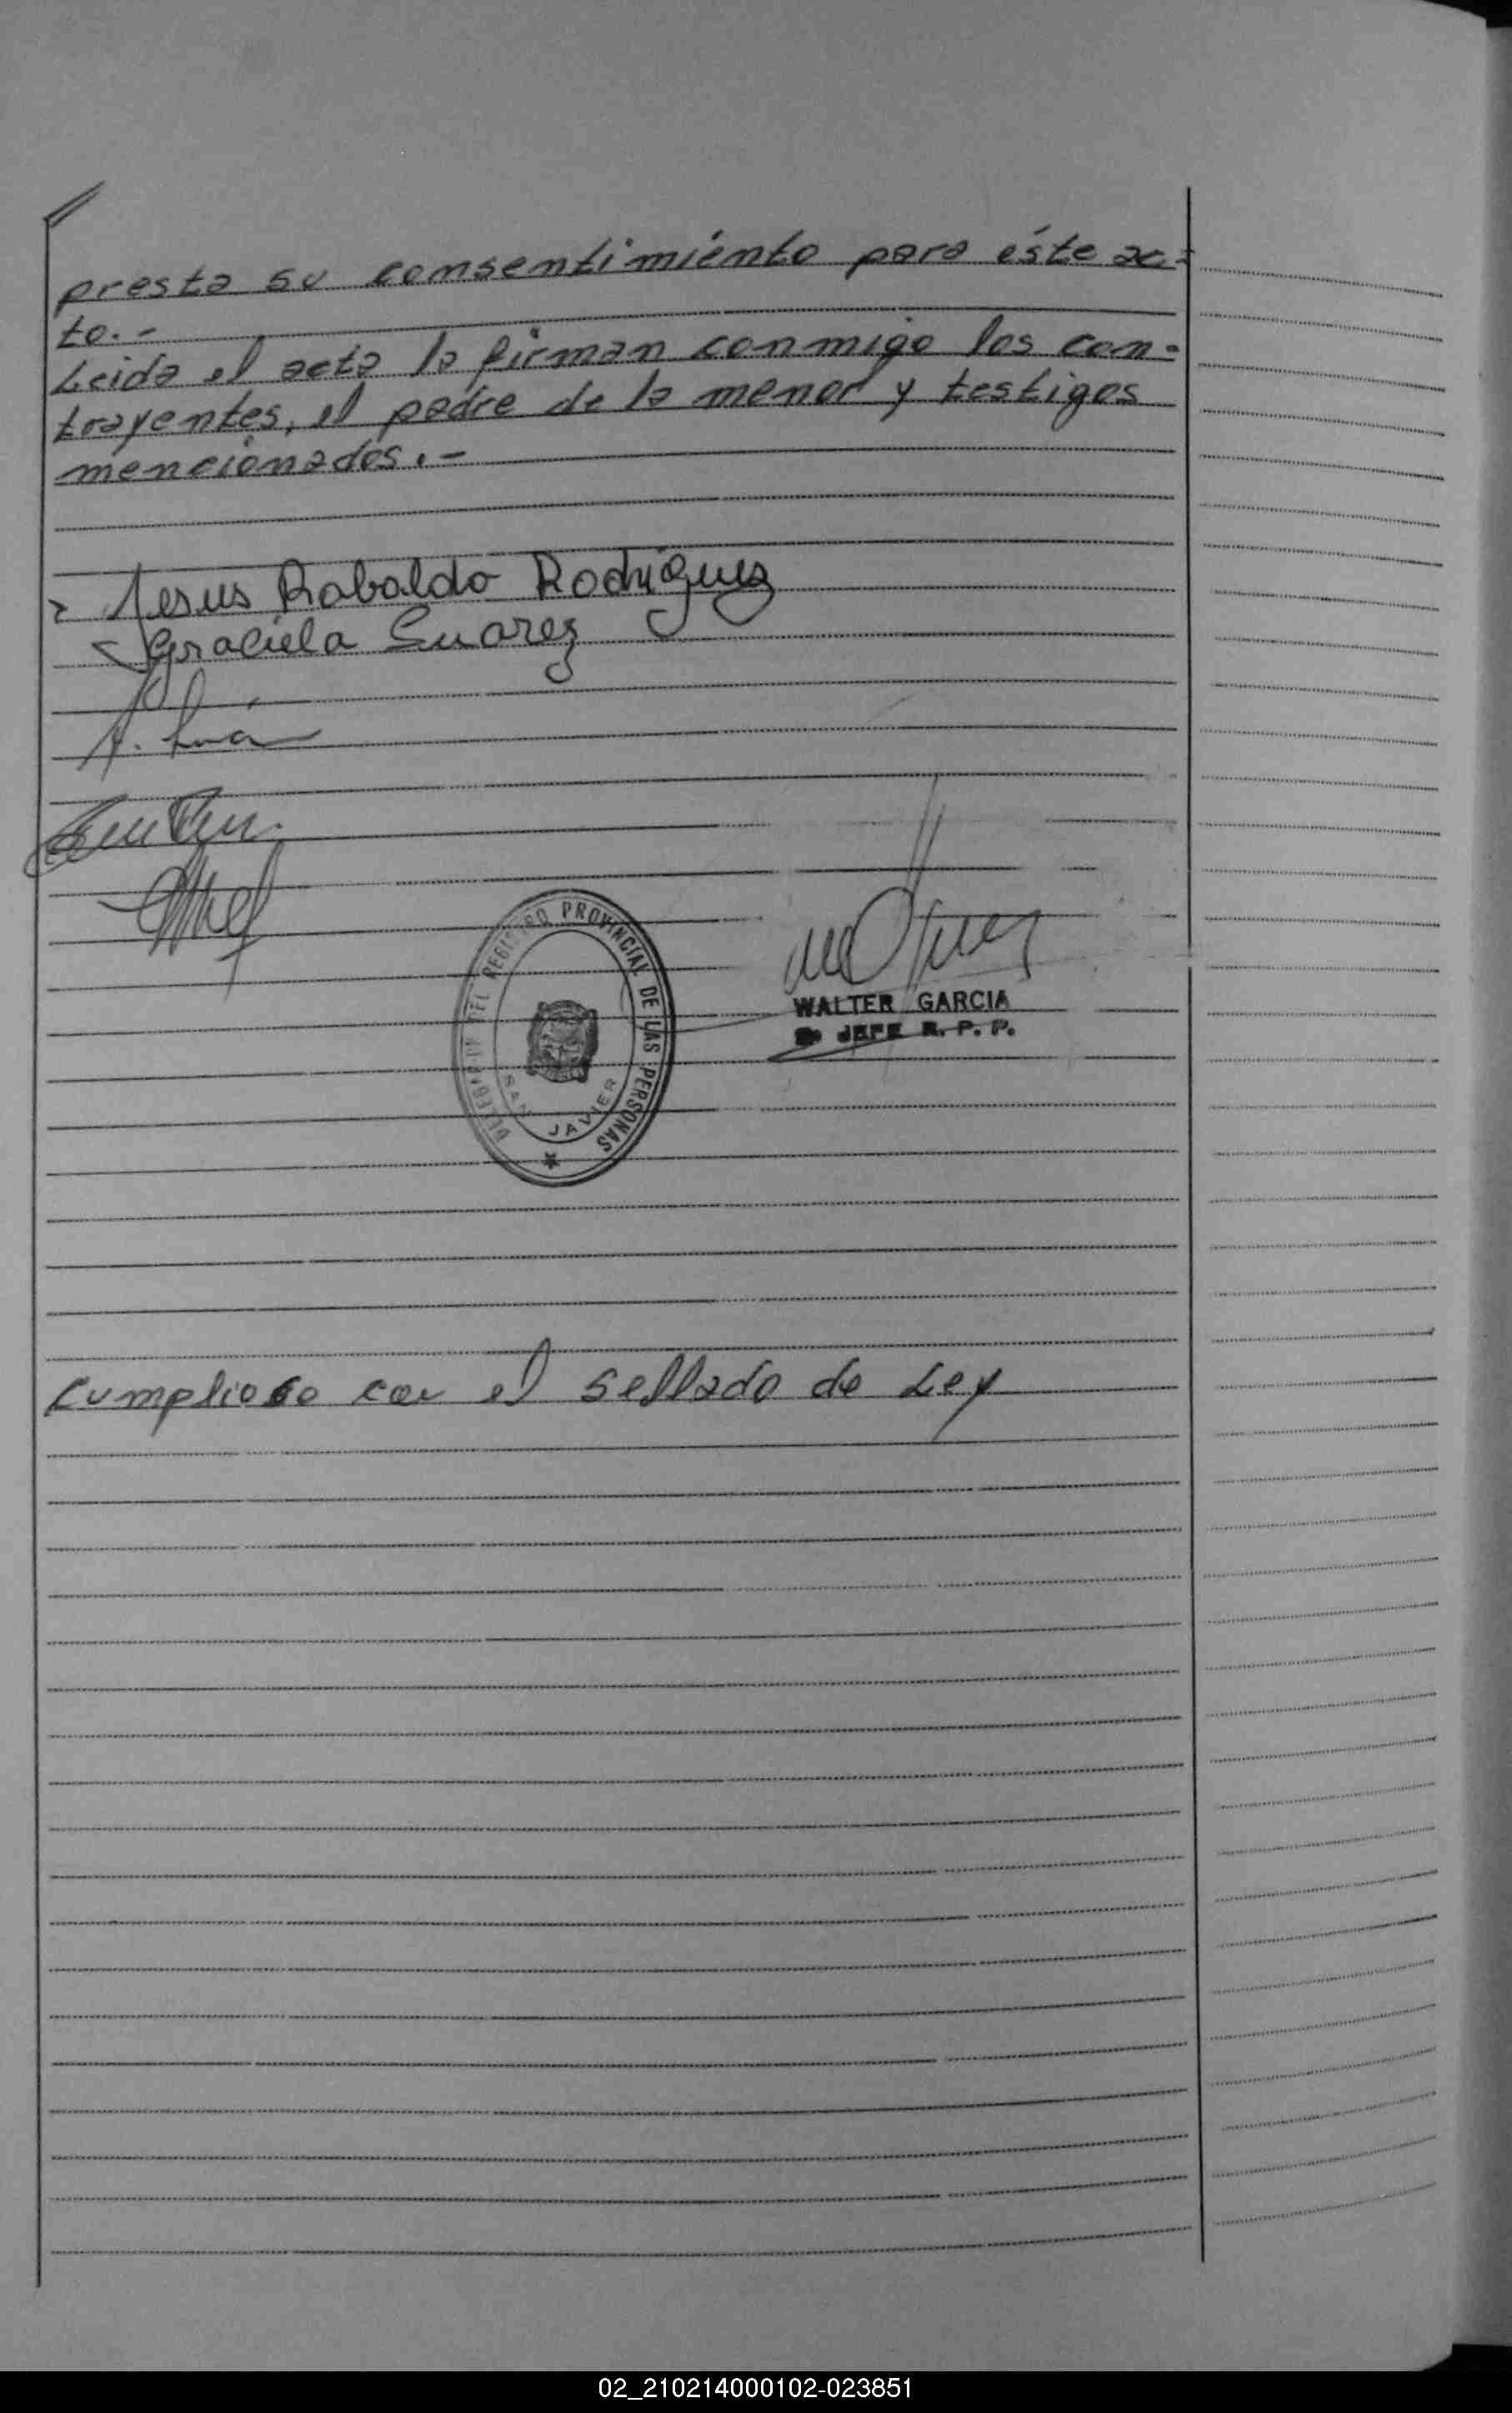 presta su consentimiénto para éste ac-
to.-
Leida el acta la firman conmigo los con-
trayentes, el padre de la menor y testigos
mencionados.-
Jesus Robaldo Rodriguez
Graciela Suarez
DELEGACIÓN DEL REGISTRO PROVINCIAL DE LAS PERSONAS
SAN JAVIER
WALTER GARCIA
JEFE R. P. P.
Cumplioso con el sellado de Ley
02_210214000102-023851